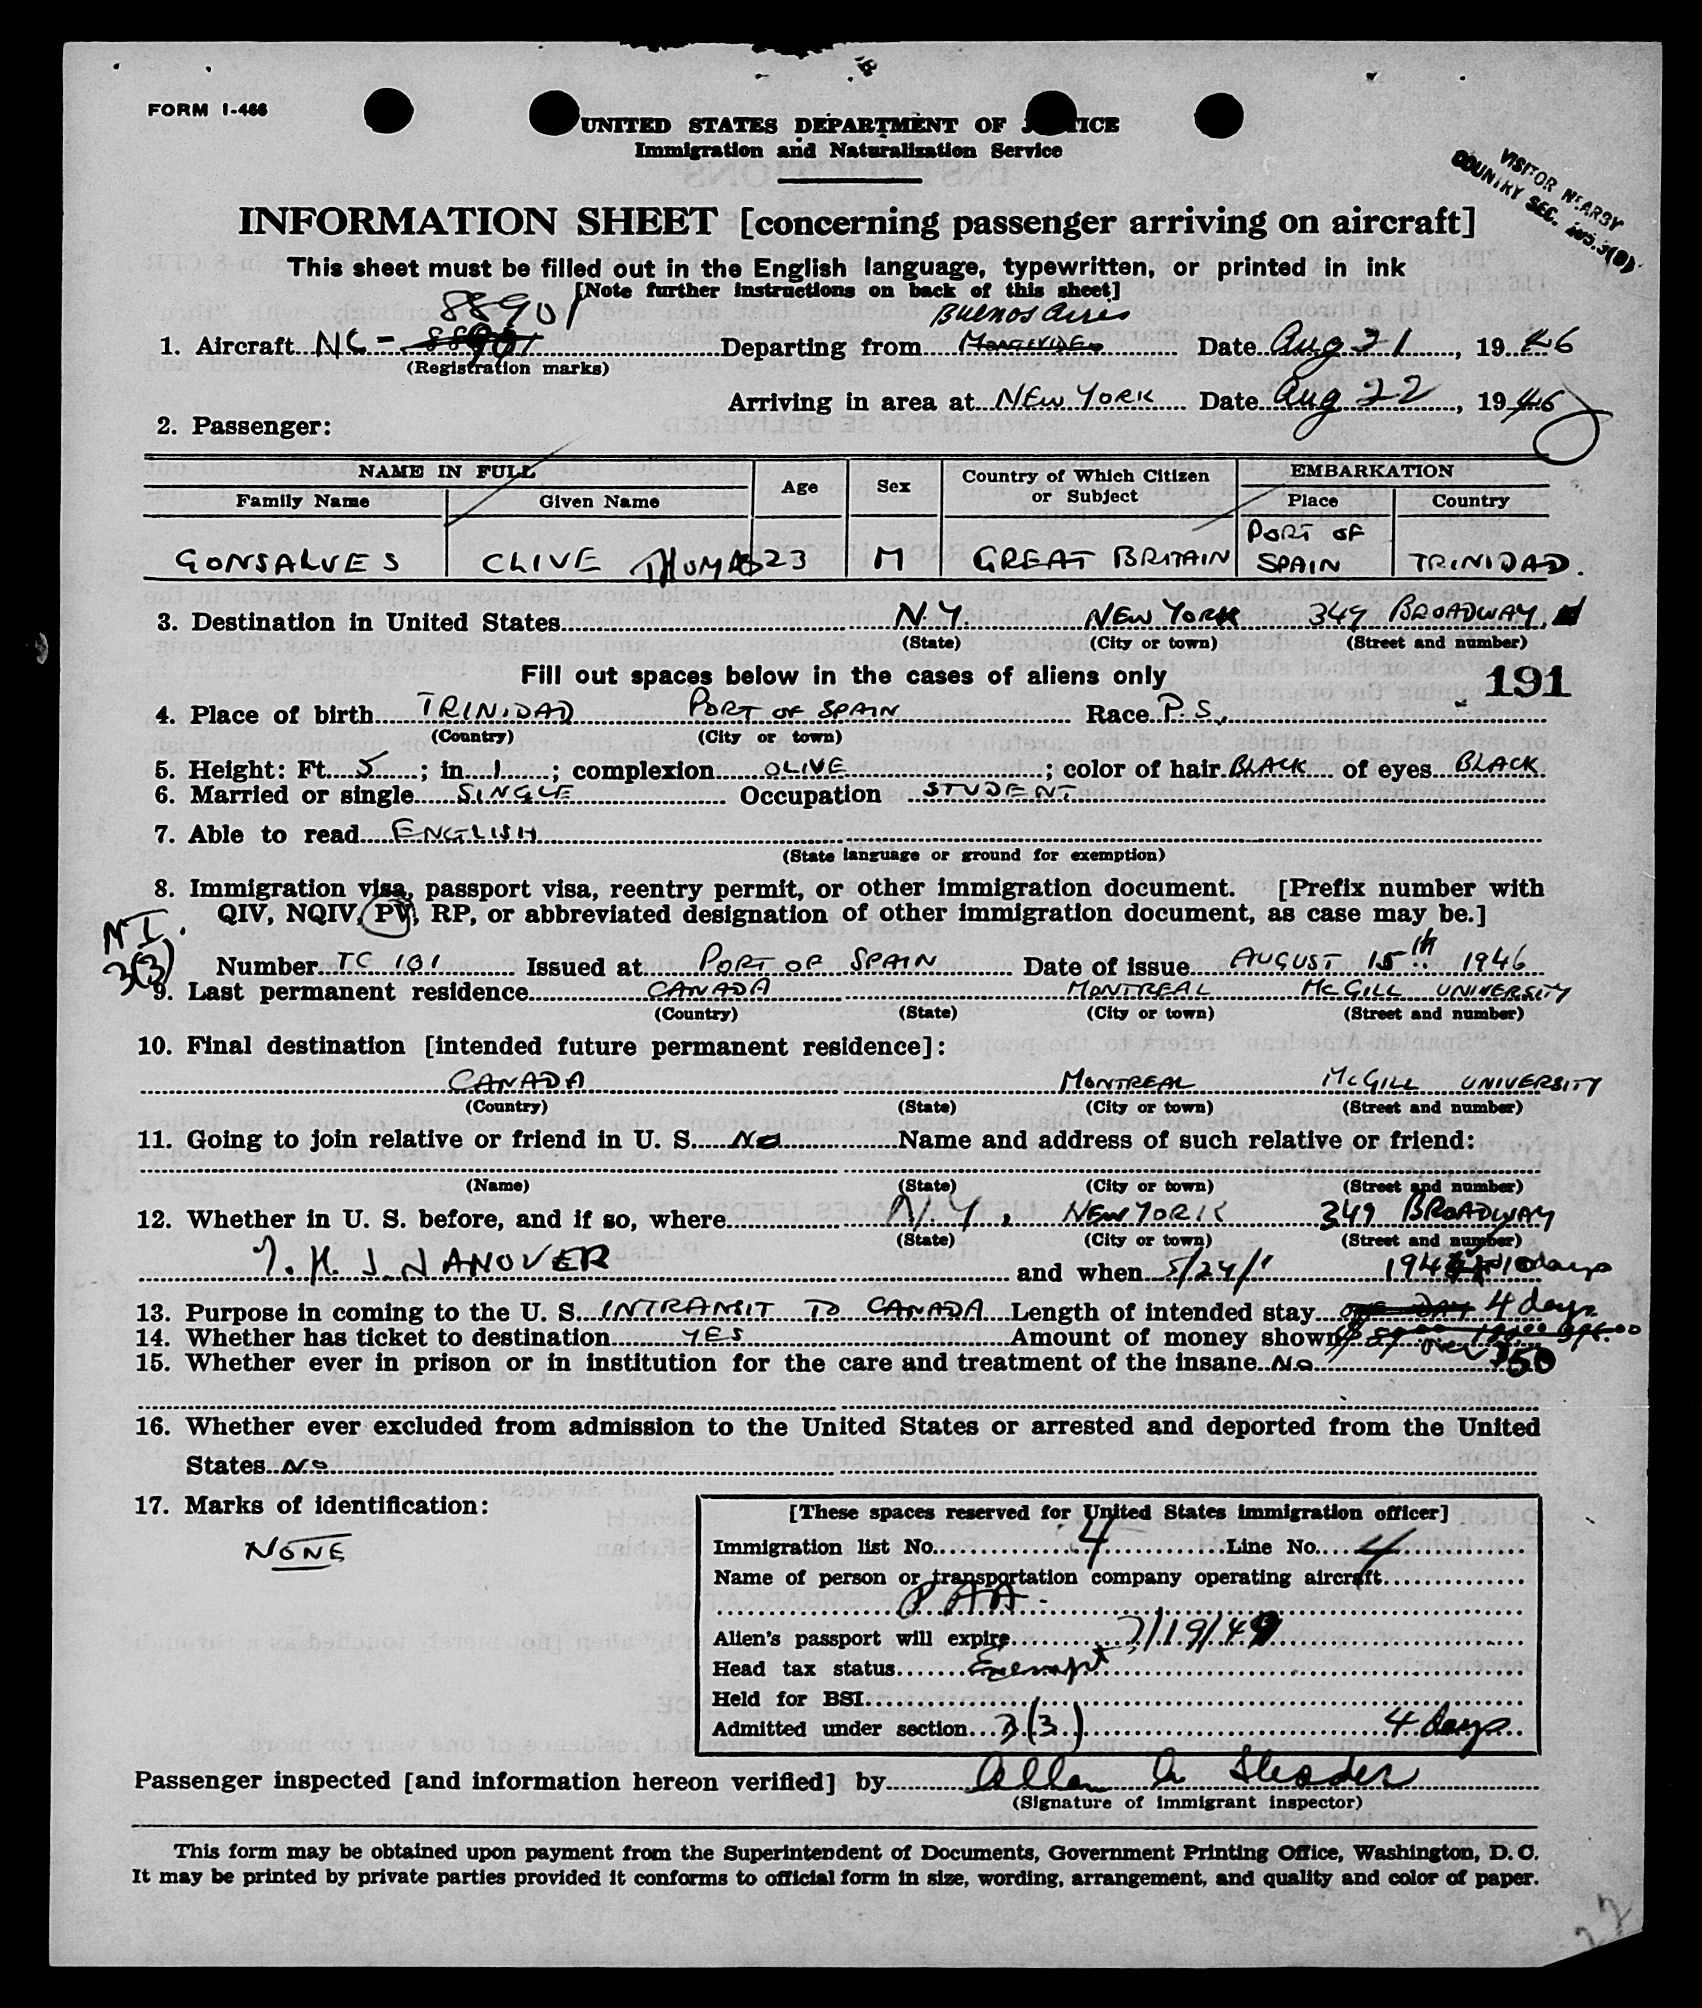 FORM I-466
UNITED STATES DEPARTMENT OF JUSTICE
Immigration and Naturalization Service
VISITOR NEARBY
COUNTRY SEC.
INFORMATION SHEET [concerning passenger arriving on aircraft]
This sheet must be filled out in the English language, typewritten, or printed in ink
[Note further instructions on back of this sheet]
88901
Buenos Aires
1. Aircraft NC- Departing from Montevideo Date Aug 21, 1946
(Registration marks)
Arriving in area at NEW YORK Date Aug 22, 1946
2. Passenger:
NAME IN FULL Age Sex Country of Which Citizen or Subject EMBARKATION
Family Name Given Name Place Country
GONSALVES CLIVE THOMAS 23 M GREAT BRITAIN PORT OF SPAIN TRINIDAD.
3. Destination in United States N.Y. NEW YORK 349 BROADWAY,
(State) (City or town) (Street and number)
Fill out spaces below in the cases of aliens only 191
4. Place of birth TRINIDAD PORT OF SPAIN Race P.S.
(Country) (City or town)
5. Height: Ft. 5; in. 1; complexion OLIVE; color of hair BLACK of eyes BLACK
6. Married or single SINGLE Occupation STUDENT
7. Able to read ENGLISH
(State language or ground for exemption)
8. Immigration visa, passport visa, reentry permit, or other immigration document. [Prefix number with
QIV, NQIV, PV, RP, or abbreviated designation of other immigration document, as case may be.]
NI.
3(3)
Number TC 101 Issued at PORT OF SPAIN Date of issue AUGUST 15th 1946
9. Last permanent residence CANADA MONTREAL McGILL UNIVERSITY
(Country) (State) (City or town) (Street and number)
10. Final destination [intended future permanent residence]:
CANADA MONTREAL McGILL UNIVERSITY
(Country) (State) (City or town) (Street and number)
11. Going to join relative or friend in U. S. No Name and address of such relative or friend:
(Name) (State) (City or town) (Street and number)
12. Whether in U. S. before, and if so, where N.Y, NEW YORK 349 BROADWAY
(State) (City or town) (Street and number)
JANOVER and when 5/24/ 10 days
13. Purpose in coming to the U. S. INTRANSIT TO CANADA Length of intended stay 4 days
14. Whether has ticket to destination YES Amount of money shown over $50
15. Whether ever in prison or in institution for the care and treatment of the insane No
16. Whether ever excluded from admission to the United States or arrested and deported from the United
States No
17. Marks of identification:
NONE
[These spaces reserved for United States immigration officer]
Immigration list No. 4 Line No. 4
Name of person or transportation company operating aircraft
PAA
Alien's passport will expire 7/19/49
Head tax status Exempt
Held for BSI
Admitted under section 3(3) 4 days
Passenger inspected [and information hereon verified] by Allan
(Signature of immigrant inspector)
This form may be obtained upon payment from the Superintendent of Documents, Government Printing Office, Washington, D. C.
It may be printed by private parties provided it conforms to official form in size, wording, arrangement, and quality and color of paper.
22